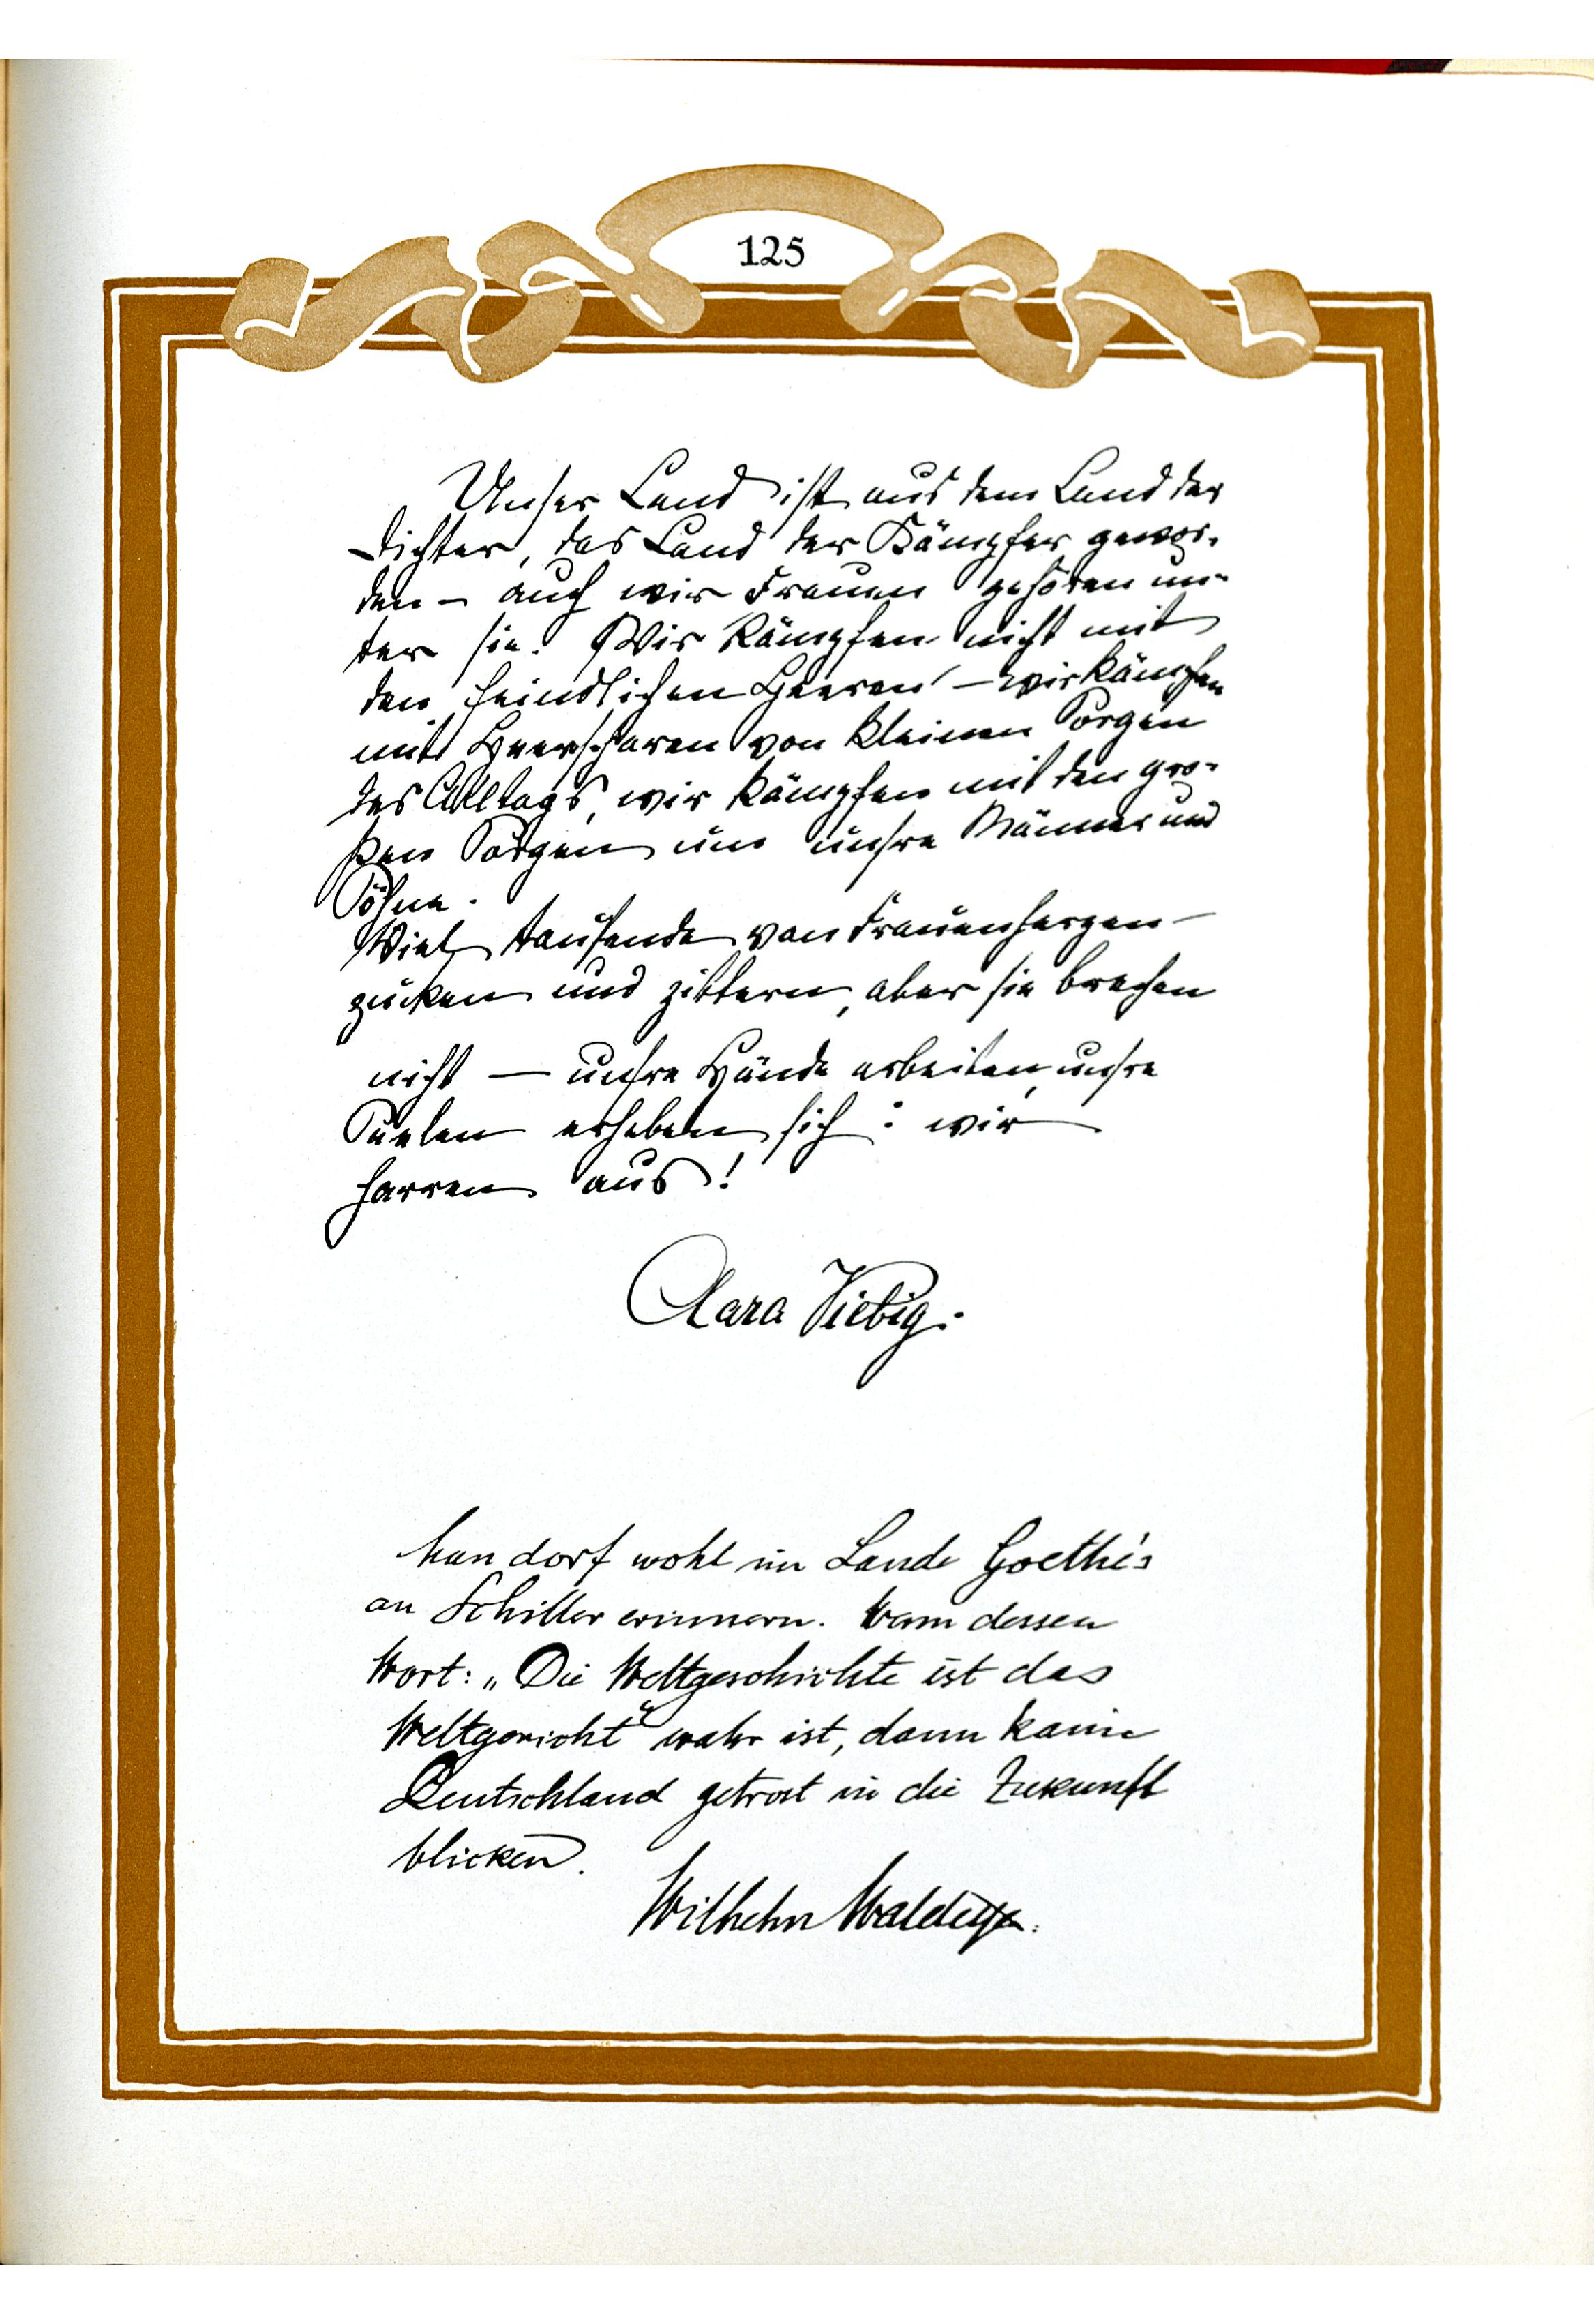 125
Unser Land ist aus dem Land der
Dichter, das Land der Kämpfer gewor-
den – auch wir Frauen gehören un-
ter sie. Wir kämpfen nicht mit
den feindlichen Heeren – wir kämpfen
mit Heerscharen von kleinen Sorgen
des Alltags, wir kämpfen mit den gro-
ßen Sorgen um unsre Männer und
Söhne.
Viel tausende von Frauenherzen
zucken und zittern, aber sie brechen
nicht — unsre Hände arbeiten, unsre
Seelen erheben sich: wir
harren aus!
Clara Viebig.
Man darf wohl im Lande Goethe's
an Schiller erinnern. Wenn dessen
Wort: „Die Weltgeschichte ist das
Weltgericht“ wahr ist, dann kann
Deutschland getrost in die Zukunft
blicken.
Wilhelm Waldeyer.